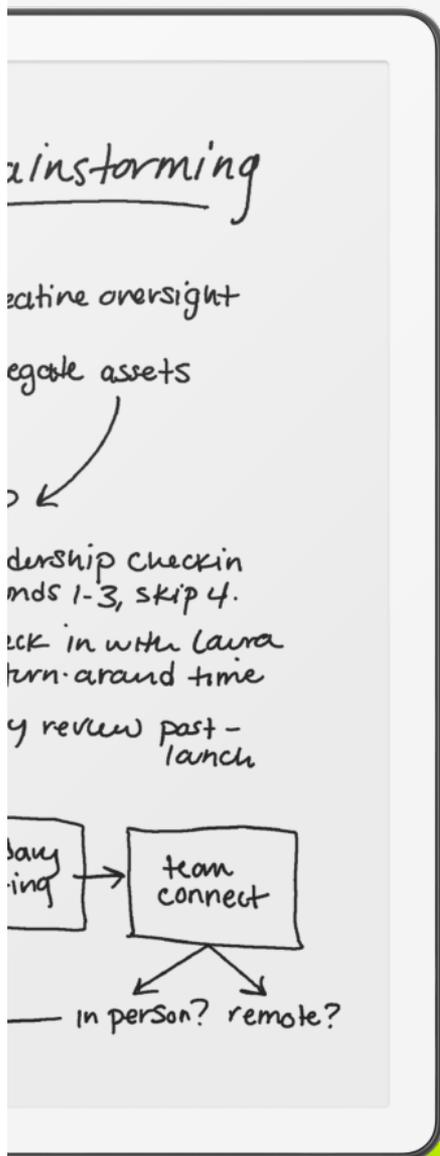 ainstorming
eative oversight
egate assets
o
dership Checkin
nds 1-3, skip 4.
eck in with Laura
turn-around time
y review post-
lanch
team
connect
ing
in person? remote?